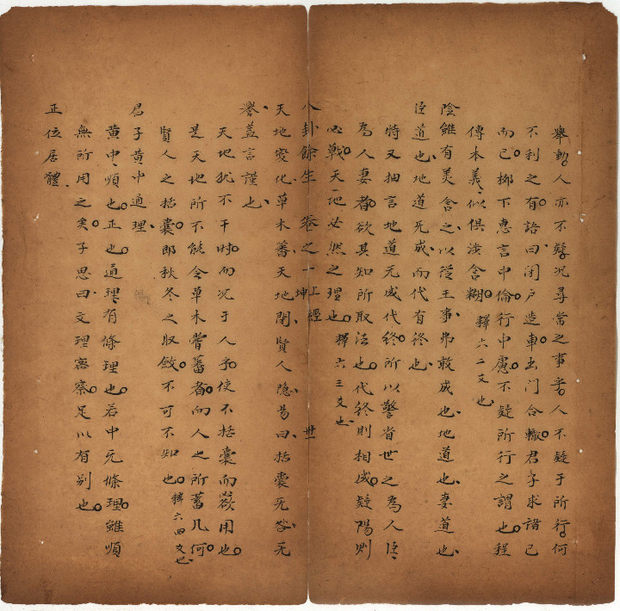 舉動人亦不疑况尋常之事者人不疑于所行何
不利之有語曰闭户造車出门合轍君子求諸己
而已柳下惠言中倫行中慮不疑所行之謂也程
傳本義似俱淺含糊 釋六二爻也
陰雖有美含之以從王事弗敢成也地道也妻道也
臣道也地道无成而代有終也
特又抽言地道无成代終所以警省世之為人臣
為人妻者欲其知所取法也代終則相成疑陽则
必戰天地必然之理也 釋六三爻也
八卦餘生 卷之一上經 坤 世
天地變化草木蕃天地閉賢人隐易曰括囊无咎无
譽盖言謹也
天地犹不干時而况于人乎使不括囊而欲用也
是天地所不能令草木嘗蕃者向人之所蓄几何
賢人之括囊即秋冬之収斂不可不知也 釋六四爻也
君子黄中通理
黄中順也正也通理有條理也若中无條理雖順
無所用之矣子思曰文理密察足以有别也
正位居體